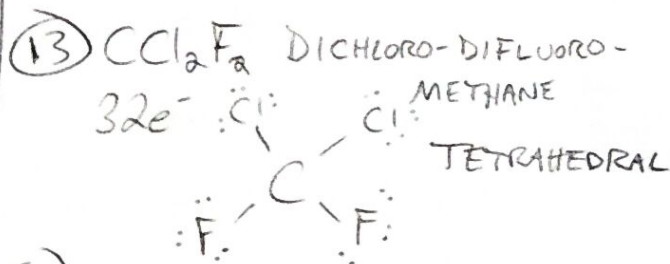 13 CCl₂F₂ DICHLORO-DIFLUORO-
METHANE
32e⁻ Cl Cl
TETRAHEDRAL
C
F F